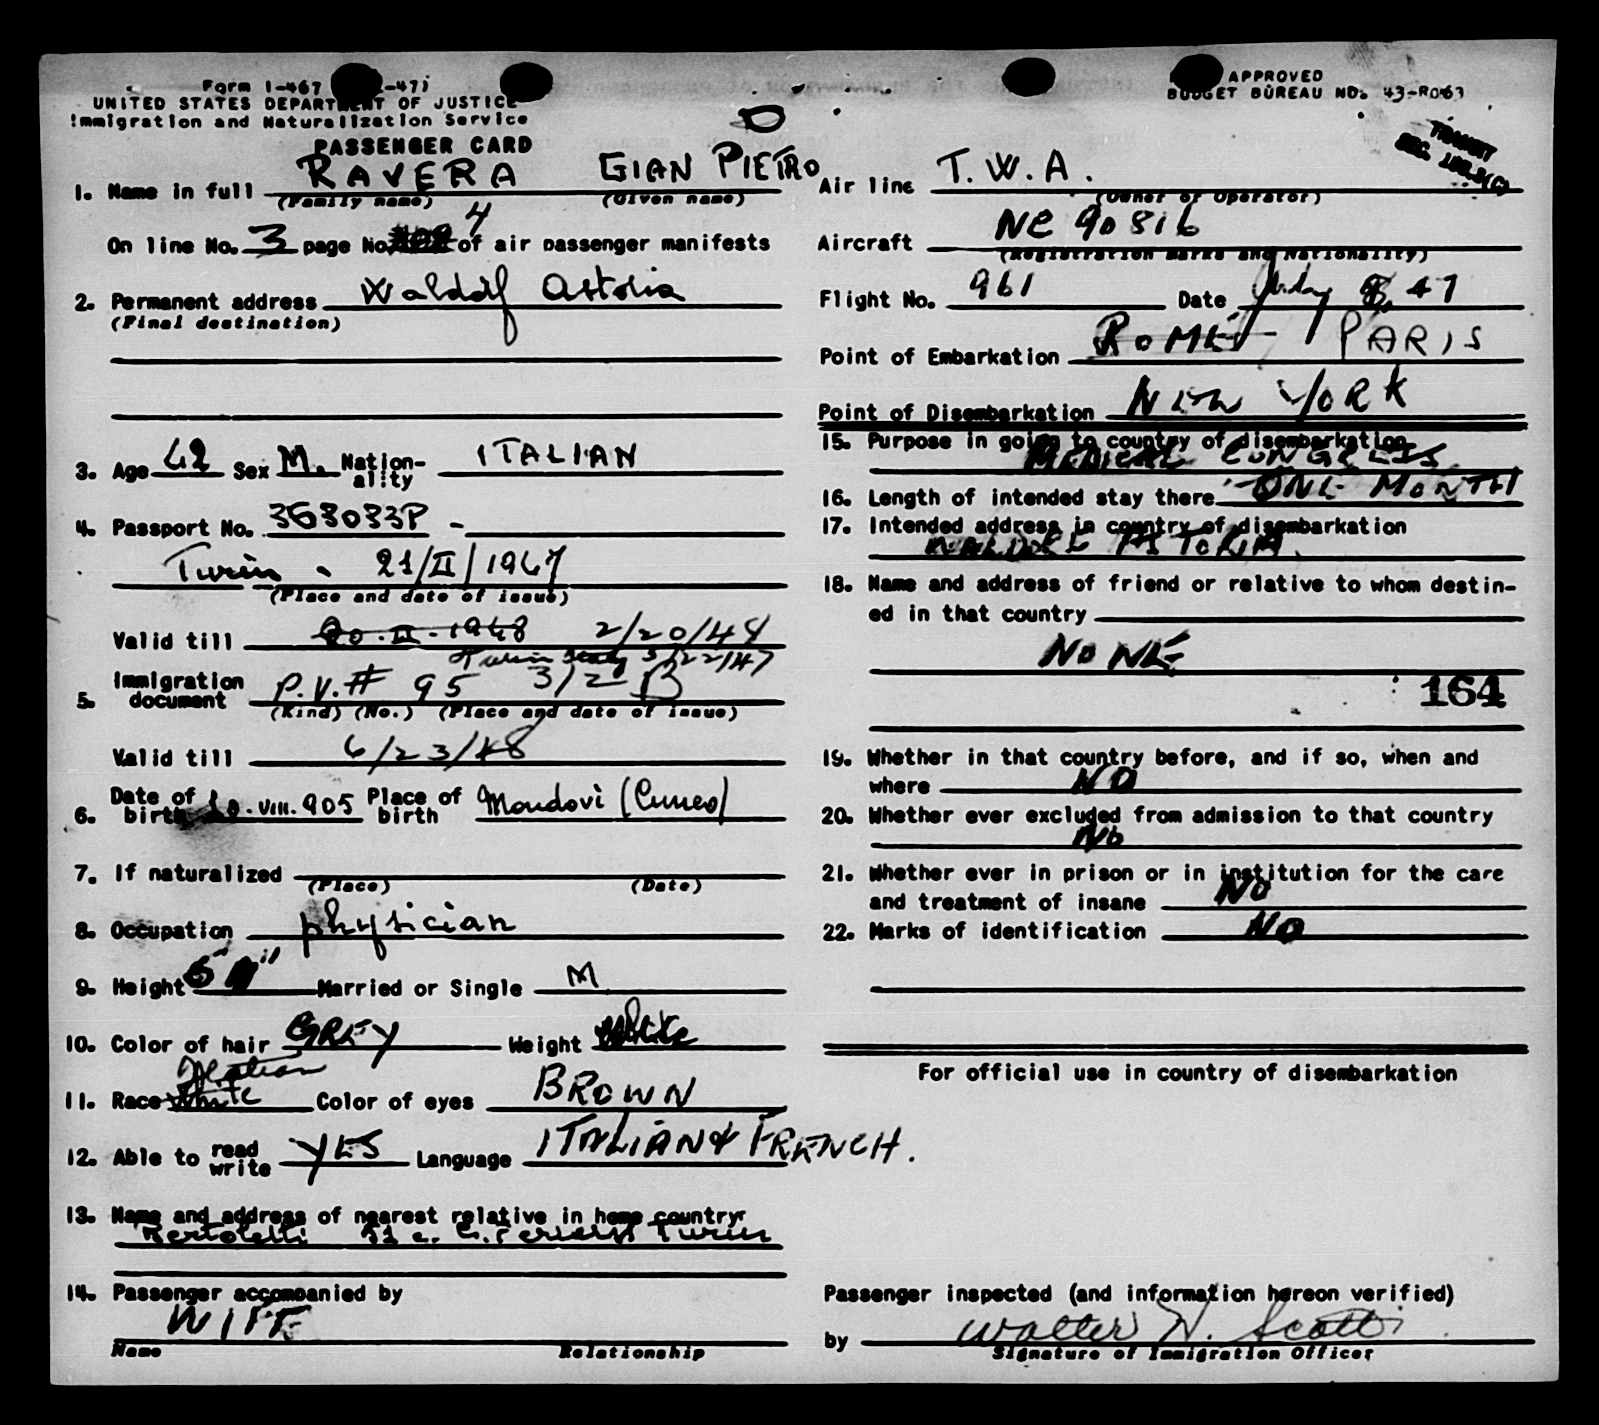 Form I-467 -47)
UNITED STATES DEPARTMENT OF JUSTICE
Immigration and Naturalization Service
PASSENGER CARD
APPROVED
BUDGET BUREAU NO. 43-R063
TRANSIT
SEC.
1. Name in full RAVERA GIAN PIETRO
(Family name) (Given name)
On line No. 3 page No. 4 of air passenger manifests
2. Permanent address Waldorf Astoria
(Final destination)
3. Age 42 Sex M. Nation-ality ITALIAN
4. Passport No. 368083P -
Turin - 21/II/1947
(Place and date of issue)
Valid till 20.II.1948 2/20/48
Turin Italy 3/22/47
5. Immigration document P.V.# 95 3/2
(Kind) (No.) (Place and date of issue)
Valid till 6/23/48
6. Date of birth .VIII.905 Place of birth Mondovì (Cuneo)
7. If naturalized
(Place) (Date)
8. Occupation physician
9. Height 5' " Married or Single M
10. Color of hair GREY Weight White
11. Race Italian White Color of eyes BROWN
12. Able to read write YES Language ITALIAN & FRENCH.
13. Name and address of nearest relative in home country
Bertoletti Turin
14. Passenger accompanied by
WIFE
Name Relationship
Air line T.W.A.
(Owner or Operator)
Aircraft NC 90816
(Registration marks and Nationality)
Flight No. 961 Date 47
Point of Embarkation ROME PARIS
Point of Disembarkation NEW YORK
15. Purpose in going to country of disembarkation
MEDICAL CONGRESS
16. Length of intended stay there ONE MONTH
17. Intended address in country of disembarkation
WALDORF ASTORIA.
18. Name and address of friend or relative to whom destin-
ed in that country
NONE
164
19. Whether in that country before, and if so, when and
where NO
20. Whether ever excluded from admission to that country
NO
21. Whether ever in prison or in institution for the care
and treatment of insane NO
22. Marks of identification NO
For official use in country of disembarkation
Passenger inspected (and information hereon verified)
by Walter N. Scott
Signature of Immigration Officer